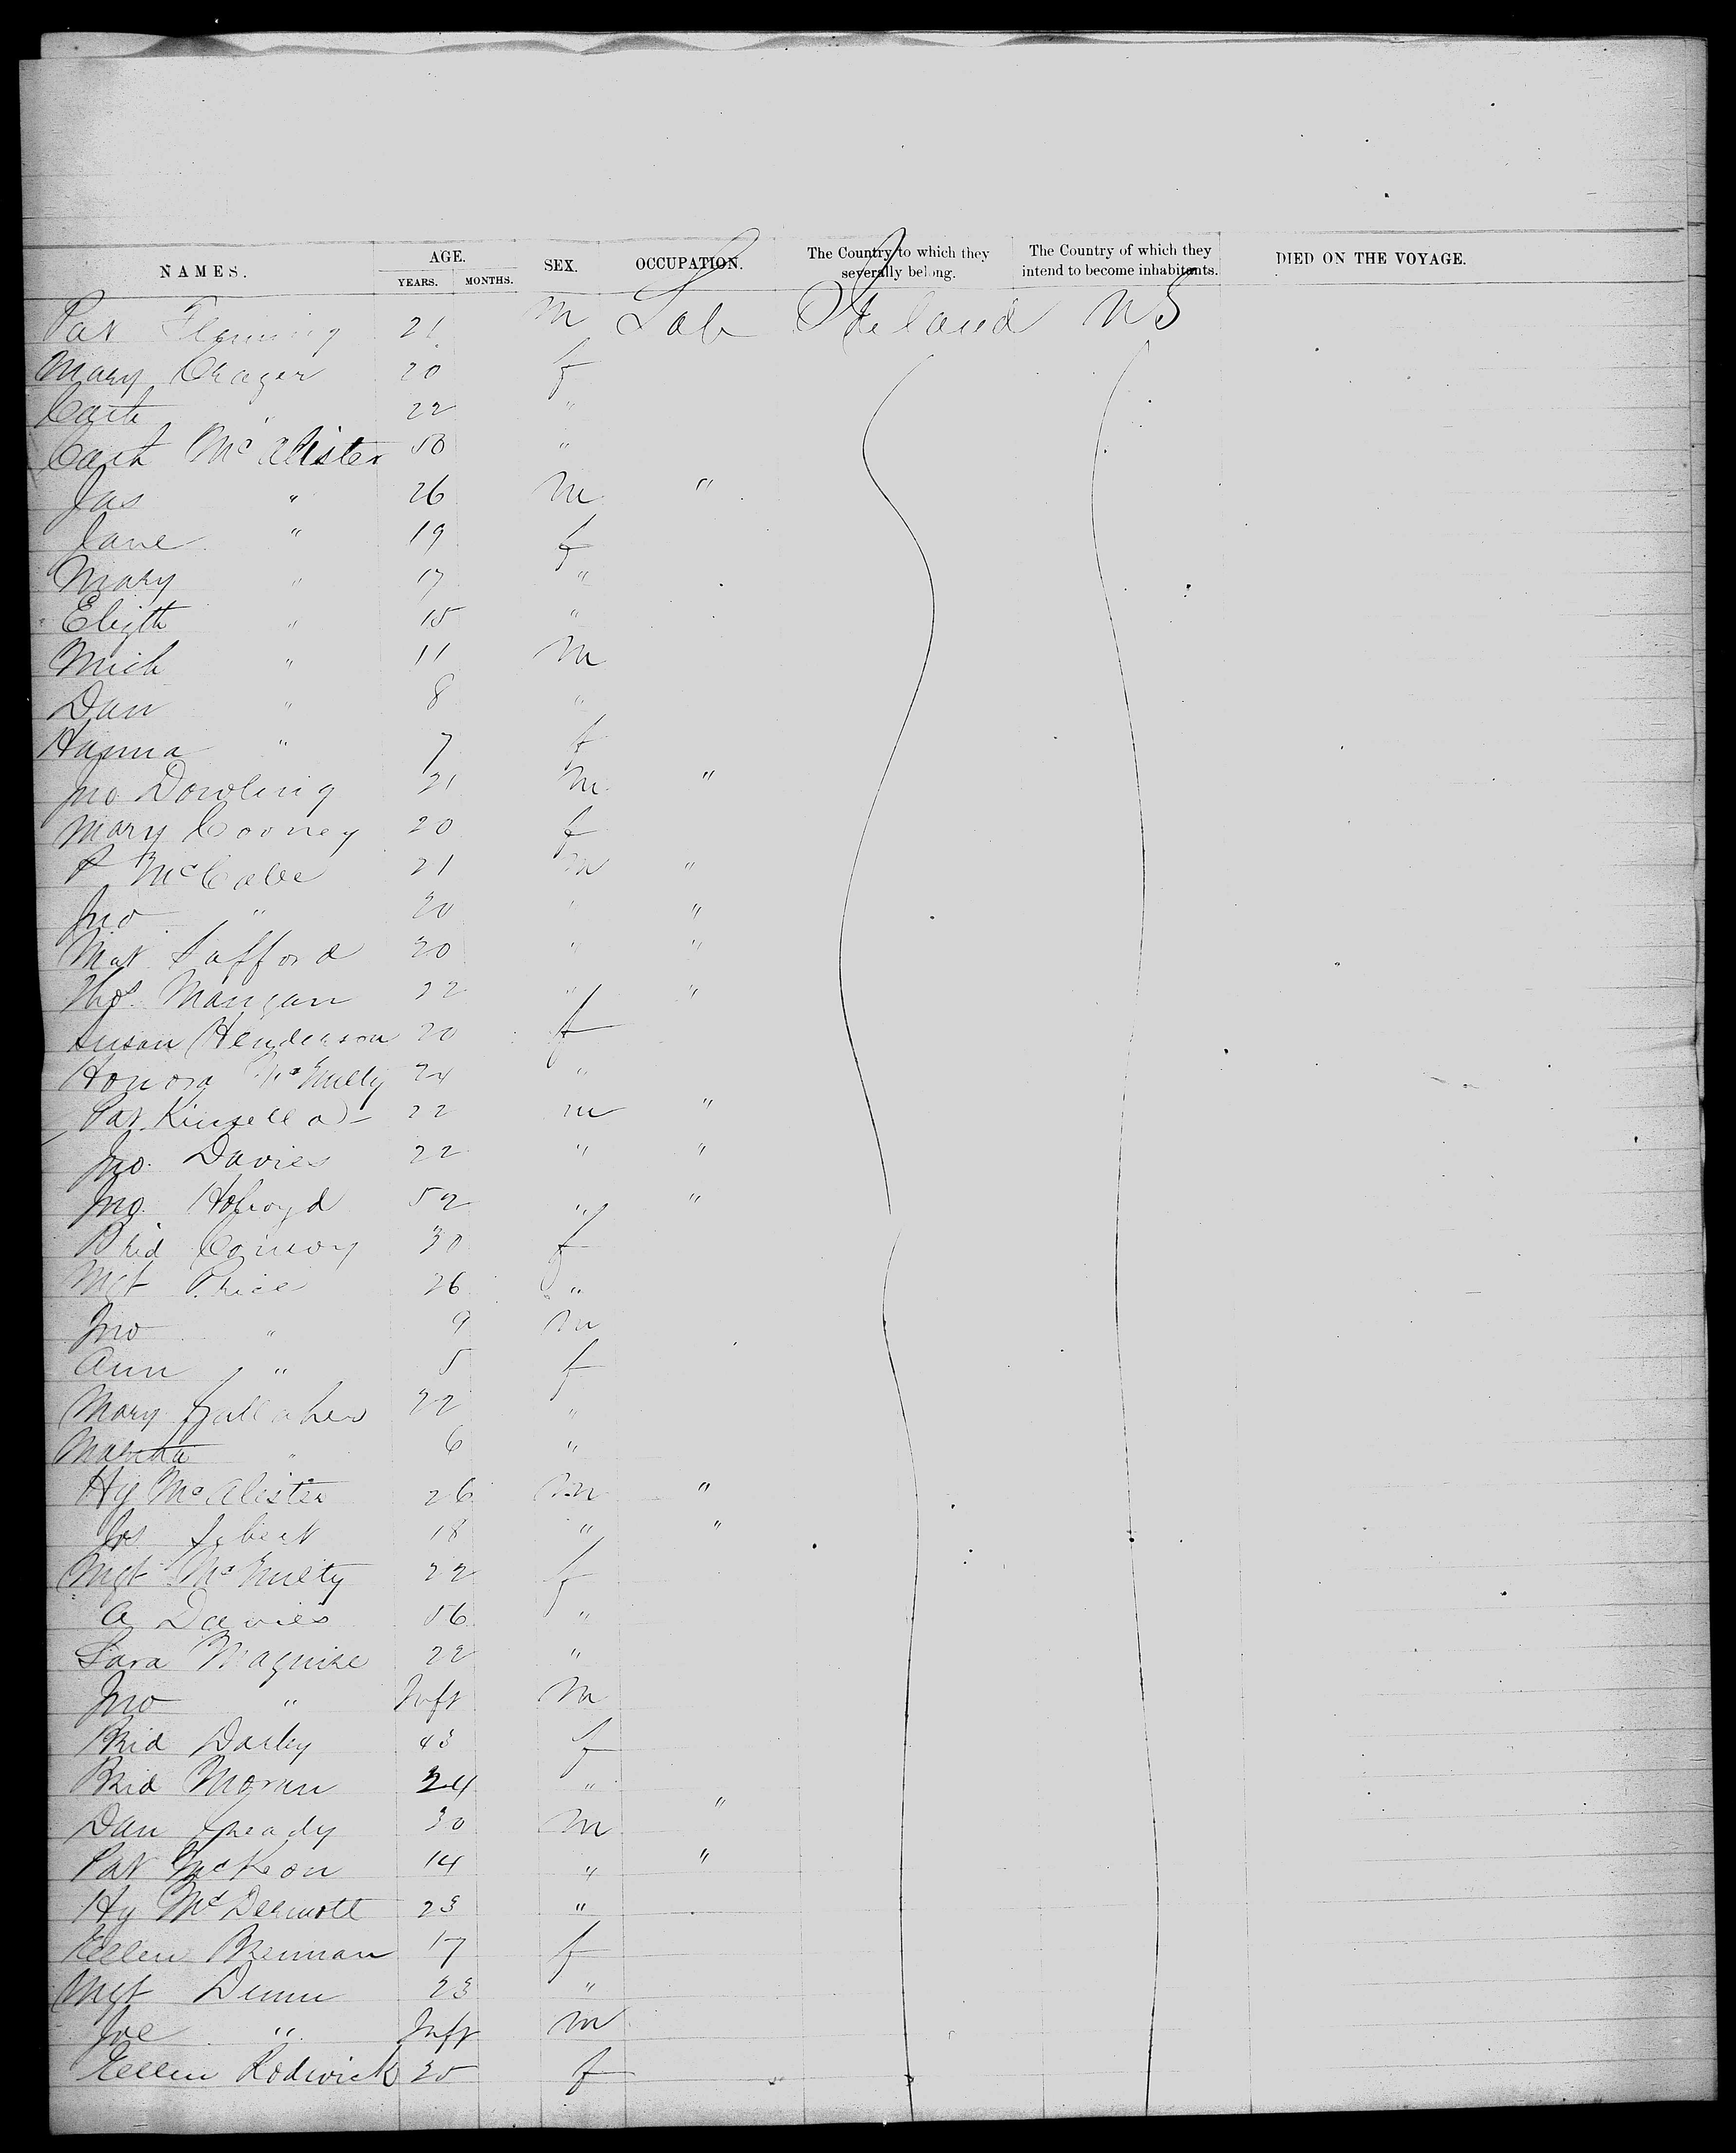 NAMES. AGE. YEARS. MONTHS. SEX. OCCUPATION. The Country to which they severally belong. The Country of which they intend to become inhabitants. DIED ON THE VOYAGE.
Pat Fleming 21 m Lab Ireland US
Mary Crager 20 f
Cath " 22 "
Cath McAlister 50 "
Jas " 26 m "
Jane " 19 f
Mary " 17 "
Elizth " 15 "
Mich " 11 m
Dan " 8 "
Hanna " 7 f
Jno Dowling 21 m "
Mary Cooney 20 f
P McCabe 21 m "
Jno " 20 " "
Mat Safford 20 " "
Thos. Mangan 22 " "
Susan Henderson 20 f
Honora McNulty 24 "
Pat. Kinsella 22 m "
Jno. Davies 22 " "
Jno. Holroyd 52 " "
Brid Conroy 30 f
Mgt Price 26 "
Jno " 9 m
Ann " 5 f
Mary Gallaher 22 "
Martha " 6 "
Hy McAlister 26 m "
Jos 18 " "
Mgt McNulty 22 f
A Davies 56 "
Sara Maguire 22 "
Jno " Inft m
Brid Darby 43 f
Brid Moran 24 "
Dan Gready 30 m "
Pat McKeon 14 " "
Hy McDermott 23 "
Ellen Brennan 17 f
Mgt Dunn 23 "
Joe " Inft m
Ellen Rodwick 20 f